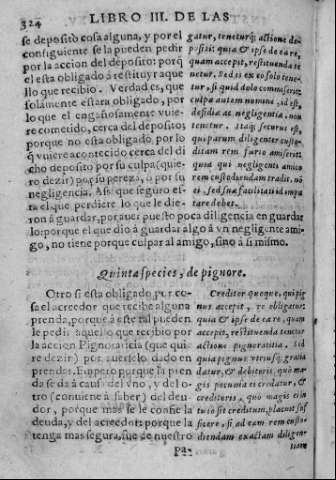 324
LIBRO III. DE LAS
se deposito cosa alguna, y por el
consiguiente se la pueden pedir
por la accion del deposito: porq̃
el esta obligado a restituyr aque
llo que recibio. Verdad es, que
solamente estara obligado, por
lo que el engañosamente vuie
re cometido, cerca del deposito:
porque no esta obligado, por lo
q̃ vuiere acontecido cerca del di
cho deposito por su culpa (quie-
re dezir) por su pereza, ò por su
negligencia. Assi que seguro es-
ta el que perdiere lo que le die-
ron à guardar, por auer puesto poca diligencia en guardar
lo: porque el que dio à guardar algo à vn negligente ami-
go, no tiene porque culpar al amigo, sino à si mismo.
gatur, teneturq́; actione de
positi: quia & ipse de ea re,
quam accepit, restituenda te
netur. Sed is ex eo solo tene-
tur, si quid dolo commiserit,
culpa autem nomine, id est,
desidiæ ac negligentiæ, non
tenetur. Itaq; securus est,
qui parum diligenter custo-
ditam rem furto amiserit:
quia qui negligenti amico
rem custodiendam tradit, nõ
ei, sed suæ facilitati id impu
tare debet.
Quinta species, de pignore.
Otro si esta obligado por co-
sa el acreedor que recibe alguna
prenda, porque à este tal pueden
le pedir aquello que recibio por
la accion Pignoraticia (que quie
re dezir) por auerselo dado en
prendas. Empero porque la pren
da se da à causa del vno, y del o-
tro (conuiene à saber) del deu-
dor, porque mas se le confie la
deuda, y del acreedor porque la
tenga mas segura, fue de nuestro
Creditor quoque, qui pig
nus accepit, re obligatur:
quia & ipse de ea re, quam
accepit, restituenda tenetur
actione pignoratitia. Sed
quia pignus vtriusq; gratia
datur, & debitoris, quò ma-
gis pecunia ei credatur, &
creditoris, quò magis ei in
tuto sit creditum, placuit suf
ficere, si ad eam rem custo-
diendam exactam diligen-
Pa-
tiam